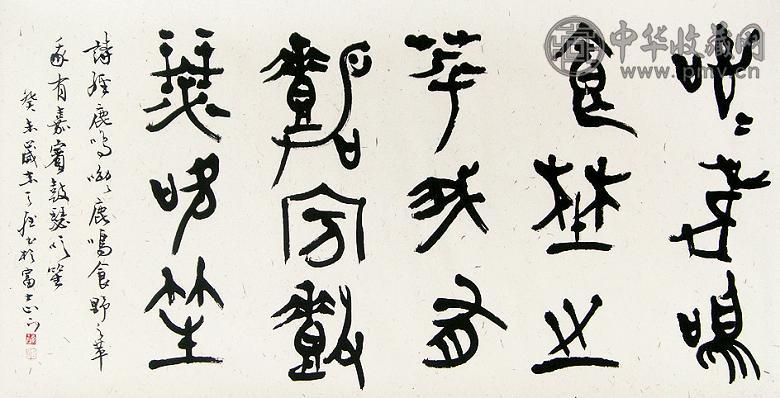 呦〻鹿鳴
食埜之
苹我有
嘉賓鼓
瑟吹笙
詩經鹿鳴呦〻鹿鳴食野之苹
我有嘉賓鼓瑟吹笙
癸未歲末於富
中华收藏网
www.pmv.cn